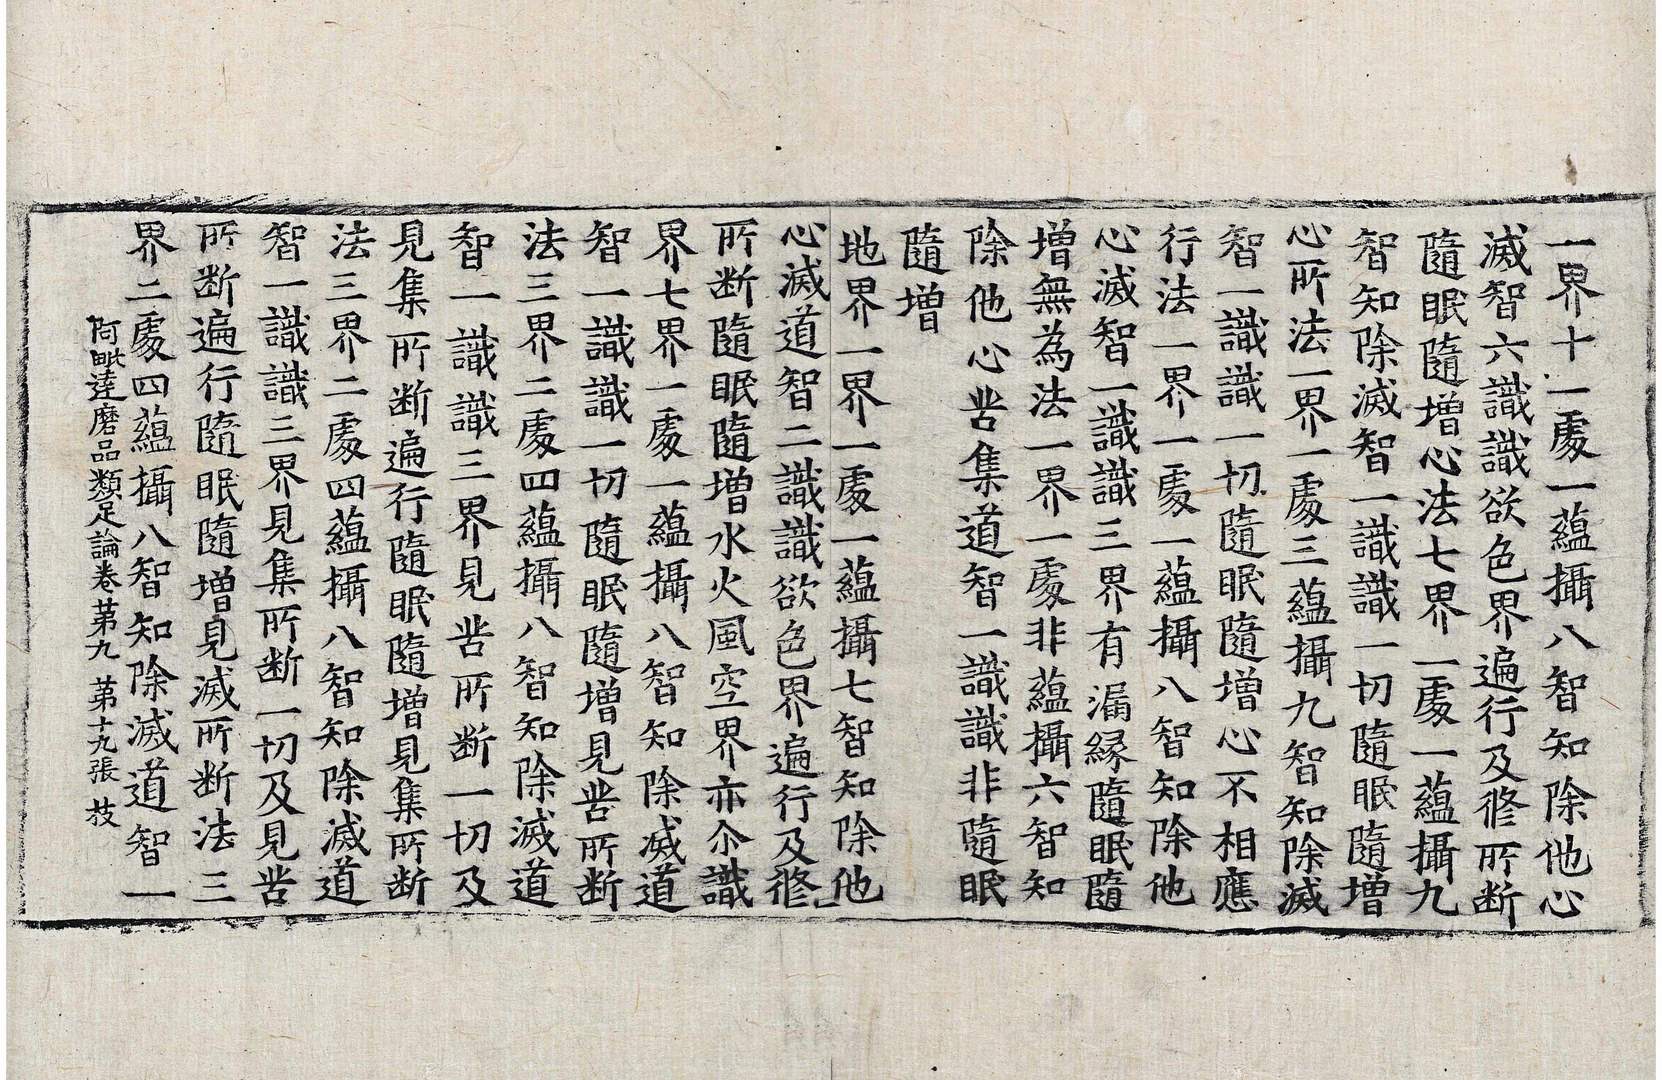 一界十一處一蘊攝八智知除他心
滅智六識識欲色界遍行及修所断
隨眠隨增心法七界一處一蘊攝九
智知除滅智一識識一切隨眠隨增
心所法一界一處三蘊攝九智知除滅
智一識識一切隨眠隨增心不相應
行法一界一處一蘊攝八智知除他
心滅智一識識三界有漏緣隨眠隨
增無為法一界一處非蘊攝六智知
除他心苦集道智一識識非隨眠
隨增
地界一界一處一蘊攝七智知除他
心滅道智二識識欲色界遍行及修
所断隨眠隨增水火風空界亦尒識
界七界一處一蘊攝八智知除滅道
智一識識一切隨眠隨增見苦所断
法三界二處四蘊攝八智知除滅道
智一識識三界見苦所断一切及
見集所断遍行隨眠隨增見集所断
法三界二處四蘊攝八智知除滅道
智一識識三界見集所断一切及見苦
所断遍行隨眠隨增見滅所断法三
界二處四蘊攝八智知除滅道智一
阿毗達磨品類足論卷苐九 苐十九張 技